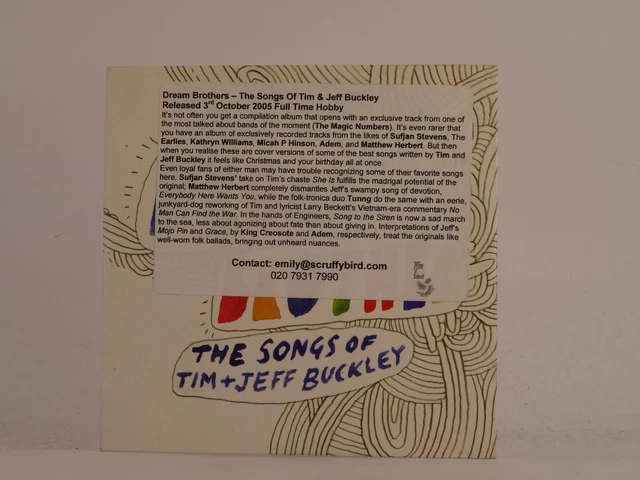 Dream Brothers – The Songs Of Tim & Jeff Buckley
Released 3rd October 2005 Full Time Hobby
It's not often you get a compilation album that opens with an exclusive track from one of
the most talked about bands of the moment (The Magic Numbers). It's even rarer that
you have an album of exclusively recorded tracks from the likes of Sufjan Stevens, The
Earlies, Kathryn Williams, Micah P Hinson, Adem, and Matthew Herbert. But then
when you realise these are cover versions of some of the best songs written by Tim and
Jeff Buckley it feels like Christmas and your birthday all at once.
Even loyal fans of either man may have trouble recognizing some of their favorite songs
here. Sufjan Stevens' take on Tim's chaste She Is fulfills the madrigal potential of the
original; Matthew Herbert completely dismantles Jeff's swampy song of devotion,
Everybody Here Wants You, while the folk-tronica duo Tunng do the same with an eerie,
junkyard-dog reworking of Tim and lyricist Larry Beckett's Vietnam-era commentary No
Man Can Find the War. In the hands of Engineers, Song to the Siren is now a sad march
to the sea, less about agonizing about fate than about giving in. Interpretations of Jeff's
Mojo Pin and Grace, by King Creosote and Adem, respectively, treat the originals like
well-worn folk ballads, bringing out unheard nuances.
Contact: emily@scruffybird.com
020 7931 7990
THE SONGS OF
TIM + JEFF BUCKLEY